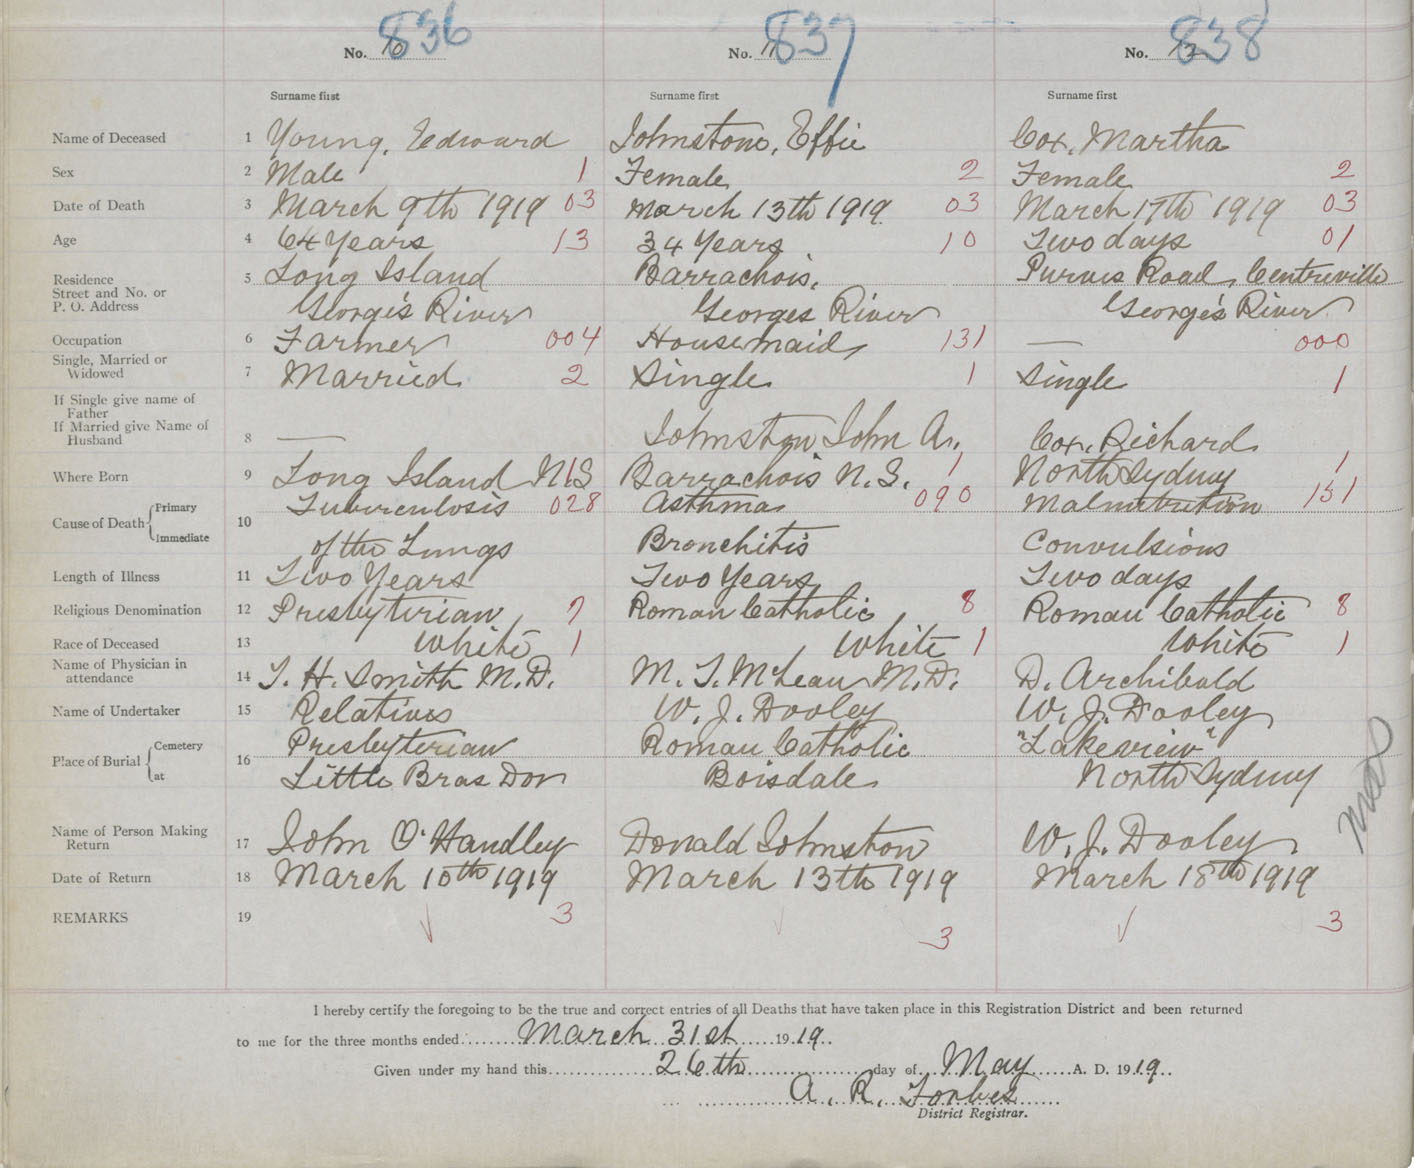 836 837 838
No. 10 No. 11 No. 12
Surname first Surname first Surname first
Name of Deceased 1 Young, Edward Johnstone, Effie Cox, Martha
Sex 2 Male 1 Female 2 Female 2
Date of Death 3 March 9th 1919 03 March 13th 1919 03 March 17th 1919 03
Age 4 64 Years 13 34 Years 10 Two days 01
Residence 5 Long Island Barrachois, Purves Road, Centreville
Street and No. or
P. O. Address George's River Georges River George's River
Occupation 6 Farmer 004 Housemaid 131 — 000
Single, Married or
Widowed 7 Married 2 Single 1 Single 1
If Single give name of
Father
If Married give Name of
Husband 8 — Johnston John A. Cox, Richard
Where Born 9 Long Island N.S 1 Barrachois N.S. 1 North Sydney 1
Cause of Death Primary 10 Tuberculosis 028 Asthma 090 Malnutrition 151
Immediate of the Lungs Bronchitis Convulsions
Length of Illness 11 Two Years Two Years Two days
Religious Denomination 12 Presbyterian 7 Roman Catholic 8 Roman Catholic 8
Race of Deceased 13 White 1 White 1 White 1
Name of Physician in
attendance 14 T. H. Smith M.D. M. T. McLean M.D. D. Archibald
Name of Undertaker 15 Relatives W. J. Dooley W. J. Dooley
Place of Burial Cemetery 16 Presbyterian Roman Catholic "Lakeview"
at Little Bras Dor Boisdale North Sydney
Name of Person Making
Return 17 John O'Handley Donald Johnston W. J. Dooley
Date of Return 18 March 10th 1919 March 13th 1919 March 18th 1919
REMARKS 19 3 3 3
I hereby certify the foregoing to be the true and correct entries of all Deaths that have taken place in this Registration District and been returned
to me for the three months ended March 31st 1919
Given under my hand this 26th day of May A. D. 1919
A. R. Forbes
District Registrar.